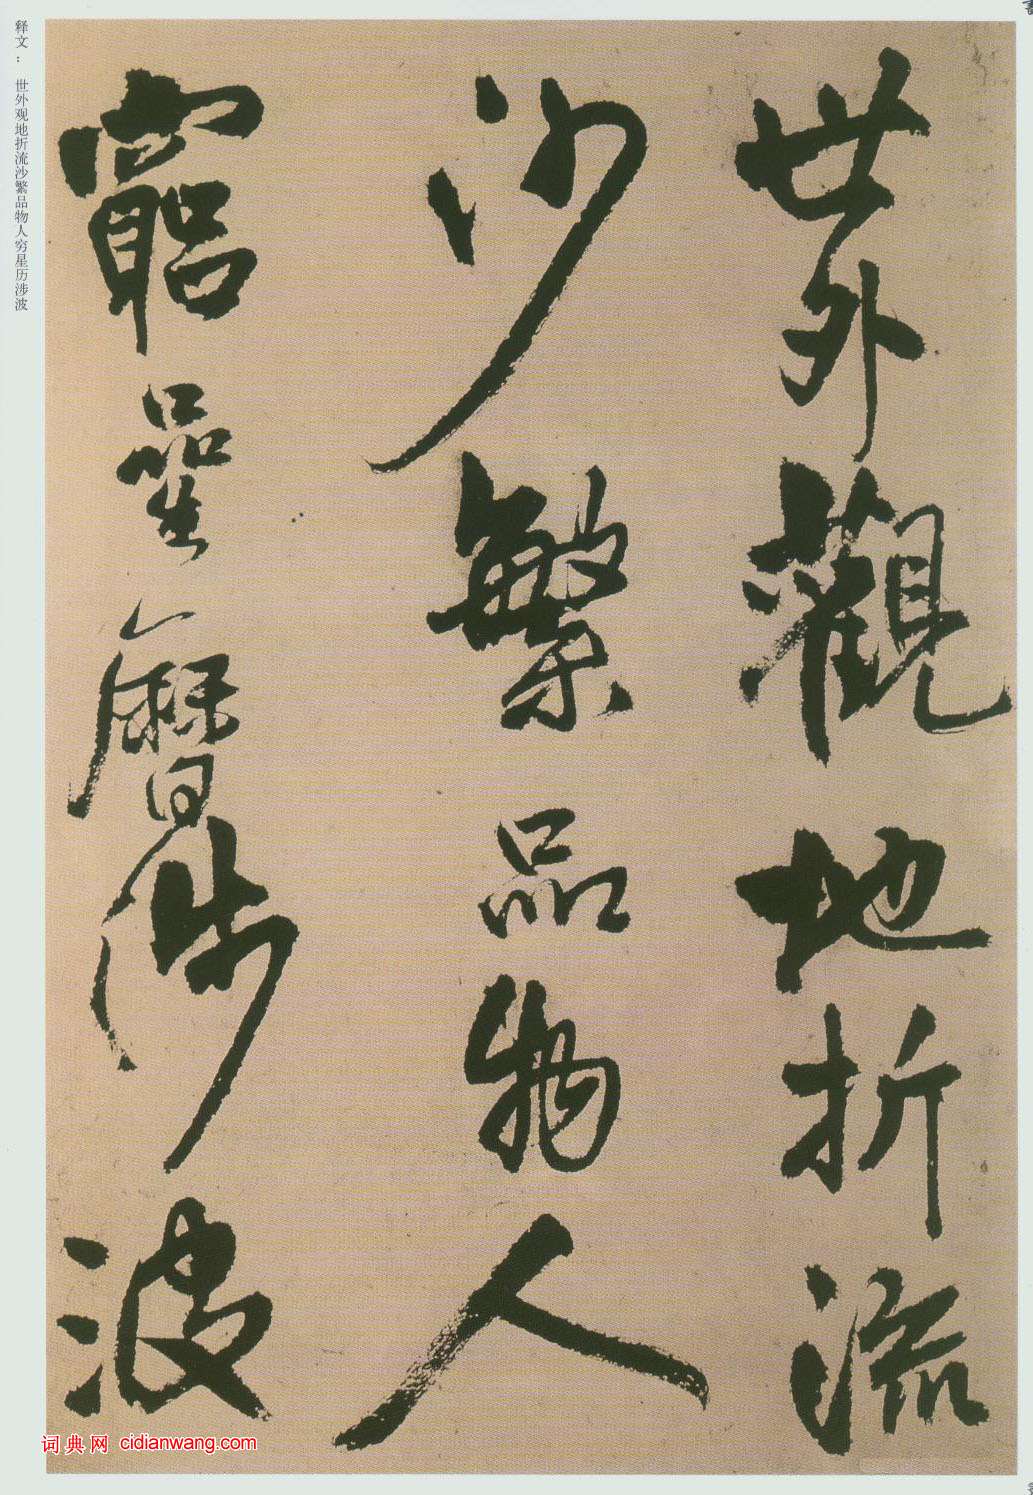 世外觀地折流
沙繁品物人
窮曐歷涉波
释文：世外观地折流沙繁品物人穷星历涉波
词典网 cidianwang.com